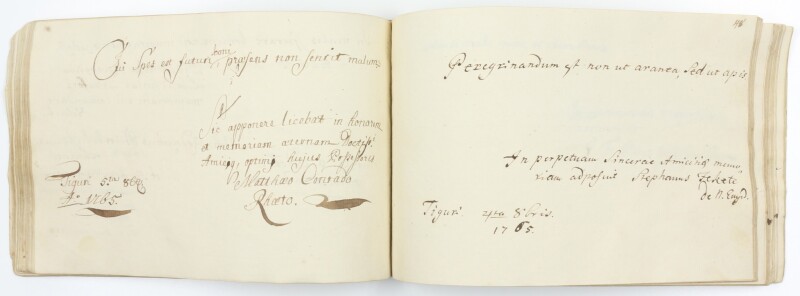 Cui Spes est futuri boni, præsens non sentit malum.
Sic apponere licebat in honorem
& memoriam æternam Doctiss.
Amiciq. optimi hujus Possessoris
Matthæo Conrado
Rhæto.
Tiguri 5.ta 8bris
Ao. 1765.
48
Peregrinandum est non ut aranea, Sed ut apis
In perpetuam Sincerae Amicitiae memo-
riam adposuit Stephanus Fekete
de N. Enyed.
Tiguri 4ta 8bris.
1765.